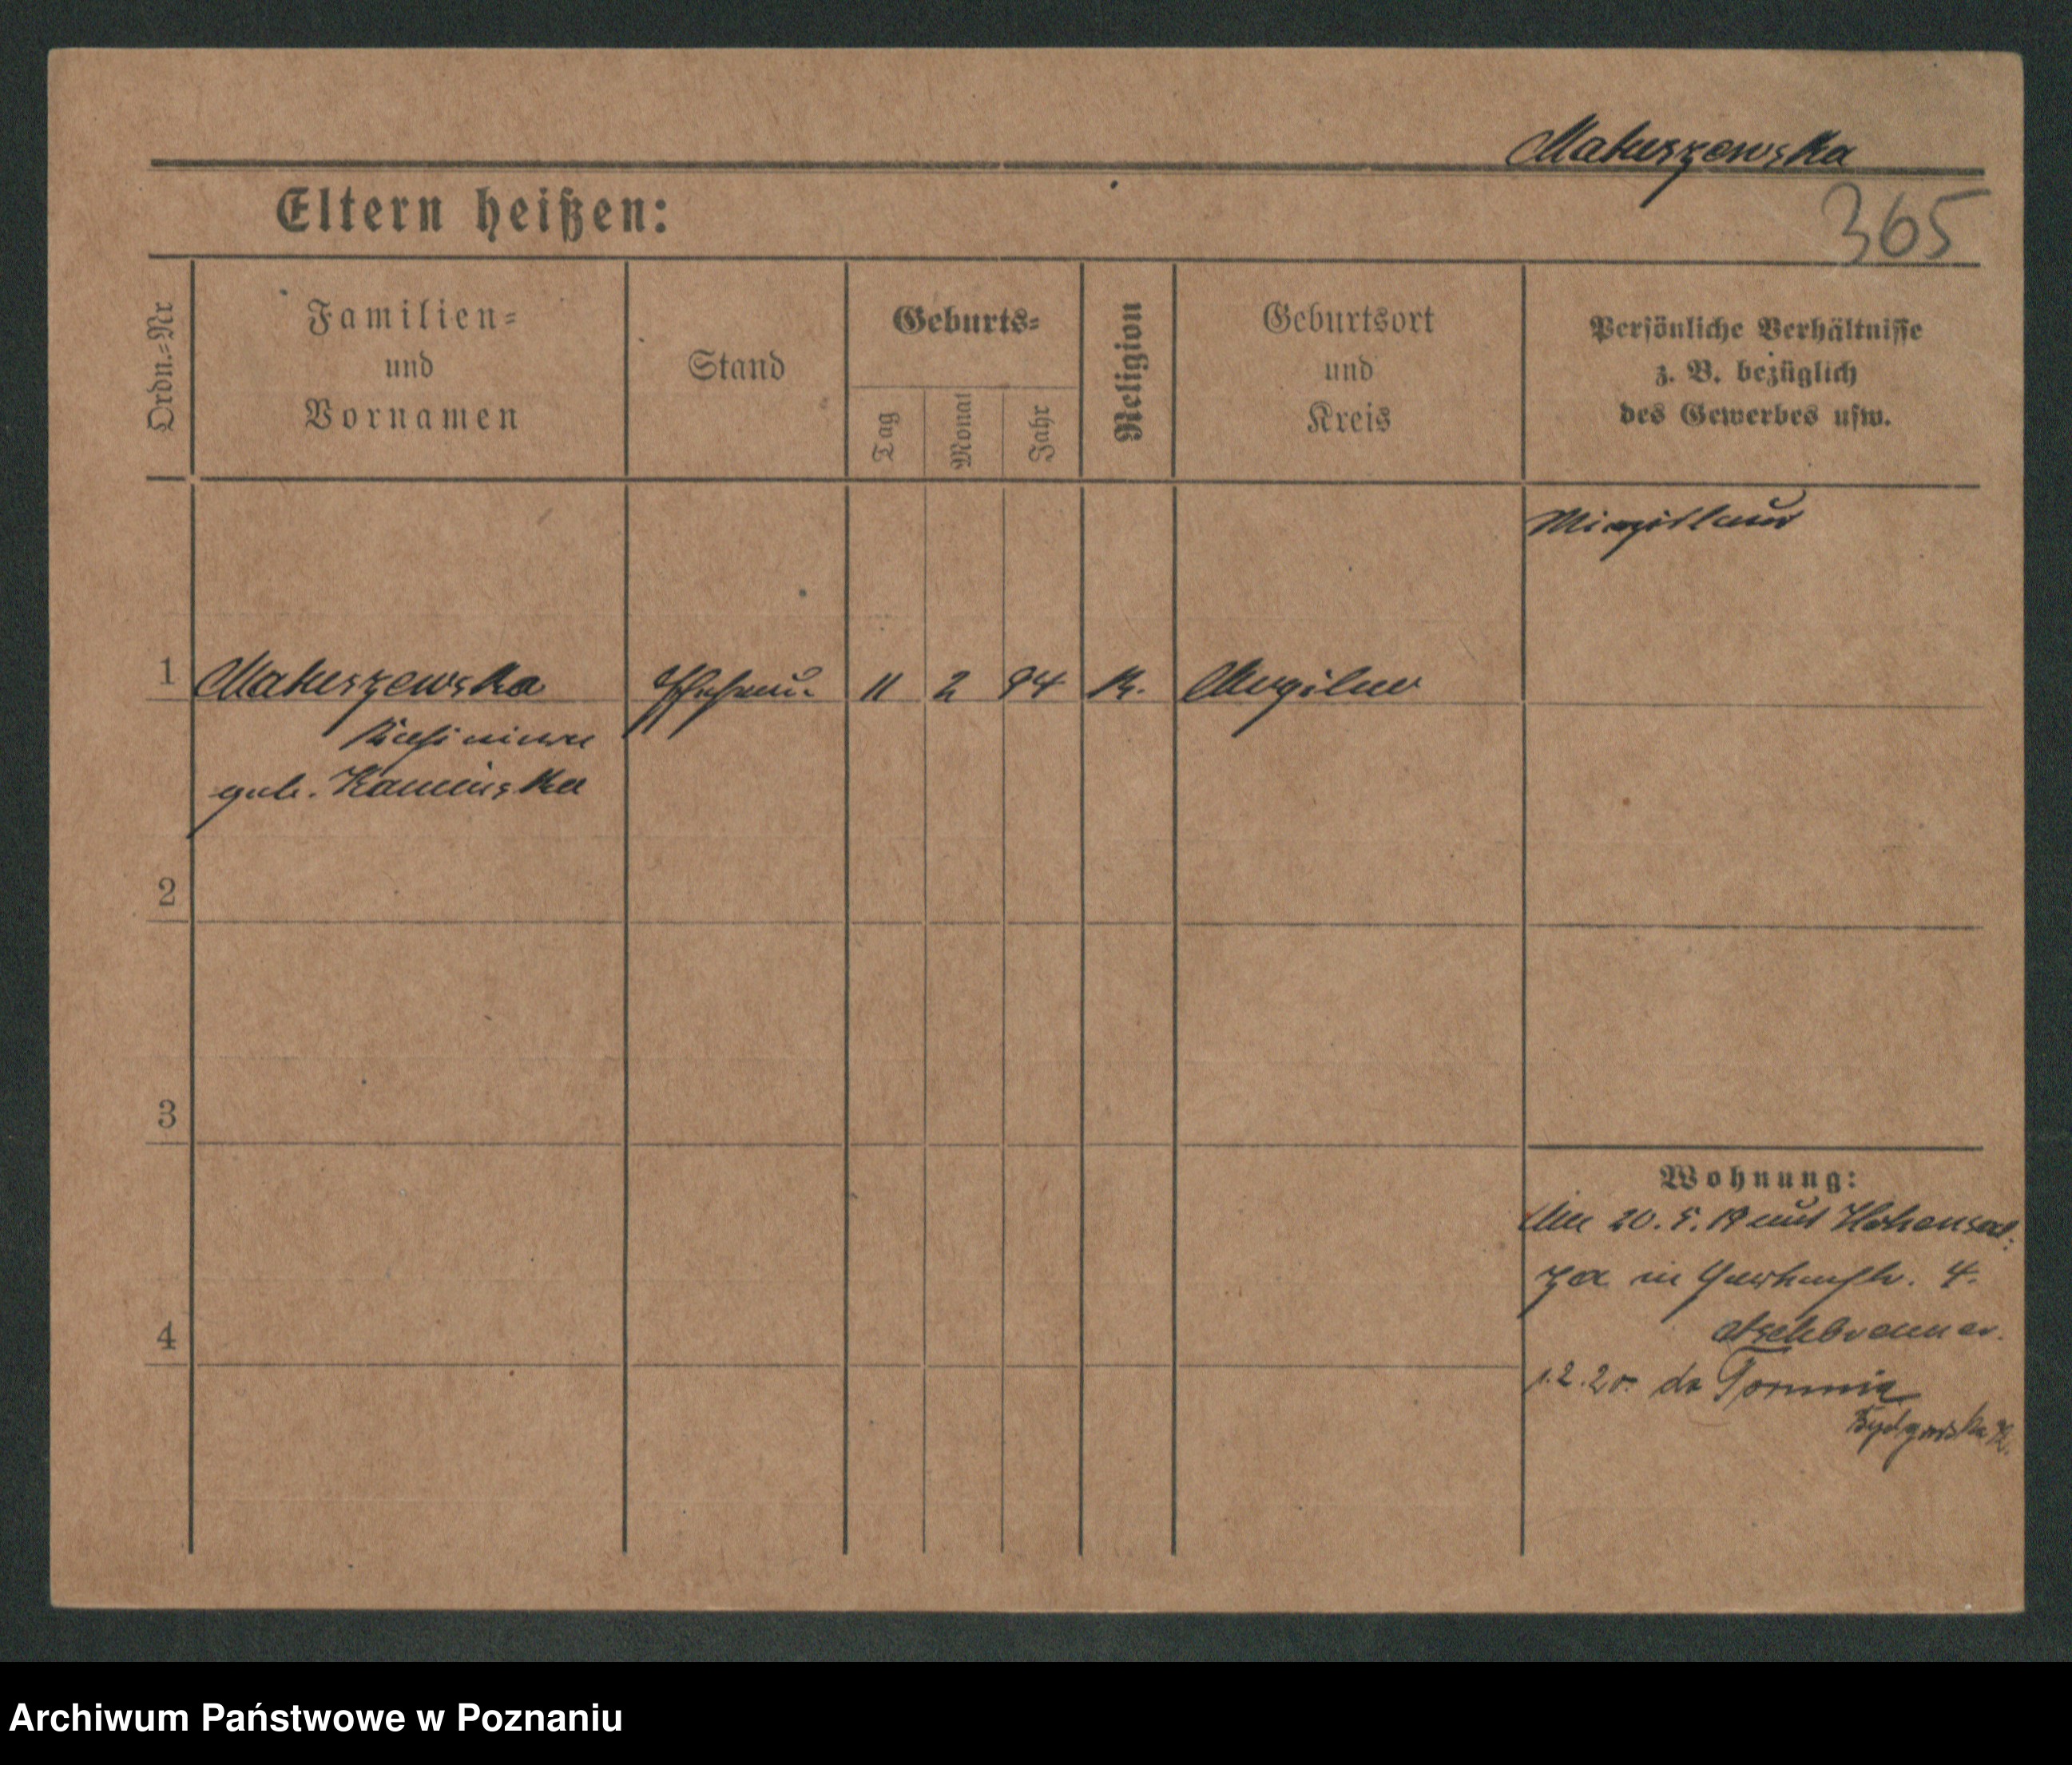 Matuszewska
365
Eltern heißen:
Ordn.=Nr
Familien=
und
Vornamen
Stand
Geburts=
Tag
Monat
Jahr
Religion
Geburtsort
und
Kreis
Persönliche Verhältnisse
z. B. bezüglich
des Gewerbes usw.
1
Matuszewska
11
2
94
k.
Mogilno
geb. Kaminska
2
3
4
Wohnung:
20. 5. 19 aus Hohensal=
za in 4.
1.2.20. do Torunia
Bydgoska
Archiwum Państwowe w Poznaniu